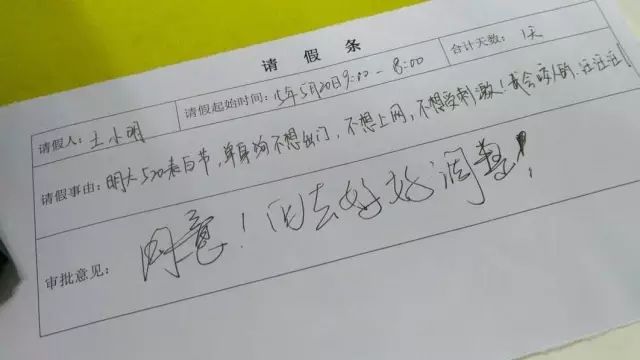 请假条
请假人：土小明 请假起始时间：15年5月20日9:00-8:00 合计天数：1天
请假事由：明天520表白节，单身狗不想出门，不想上网，不想受刺激！我会咬人的，汪汪汪！
审批意见：同意！回去好好调整！